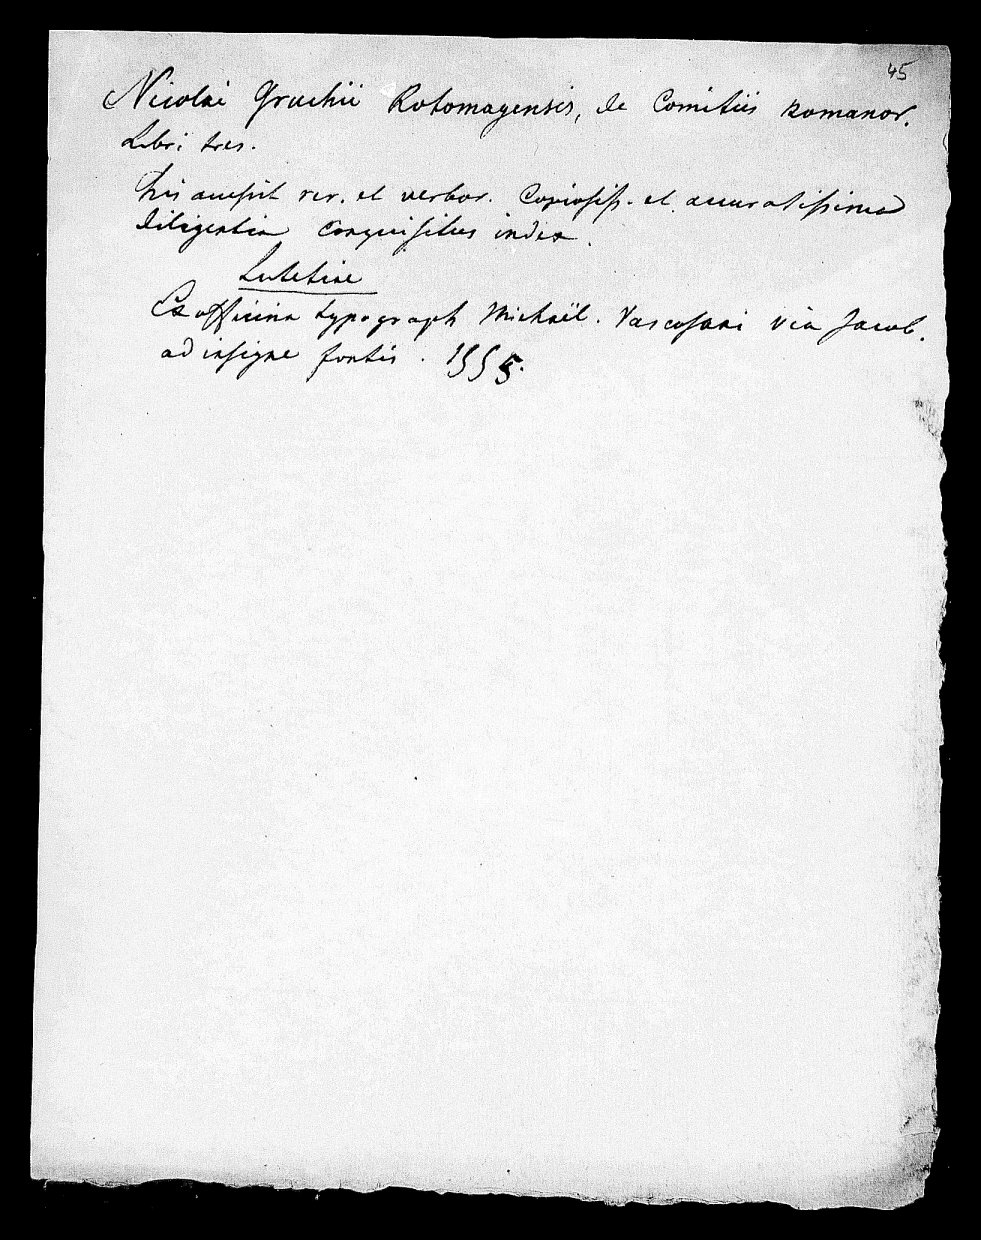 45
Nicolai Gruchii Rotomagensis, de Comitiis romanor.
Libri tres.
his accessit rer. et verbor. Copiosiss. et accuratissima
diligentia conquisitus index.
Lutetiae
Ex officina typograph Michaël. Vascosani via Jacob.
ad insigne fontis. 1555.